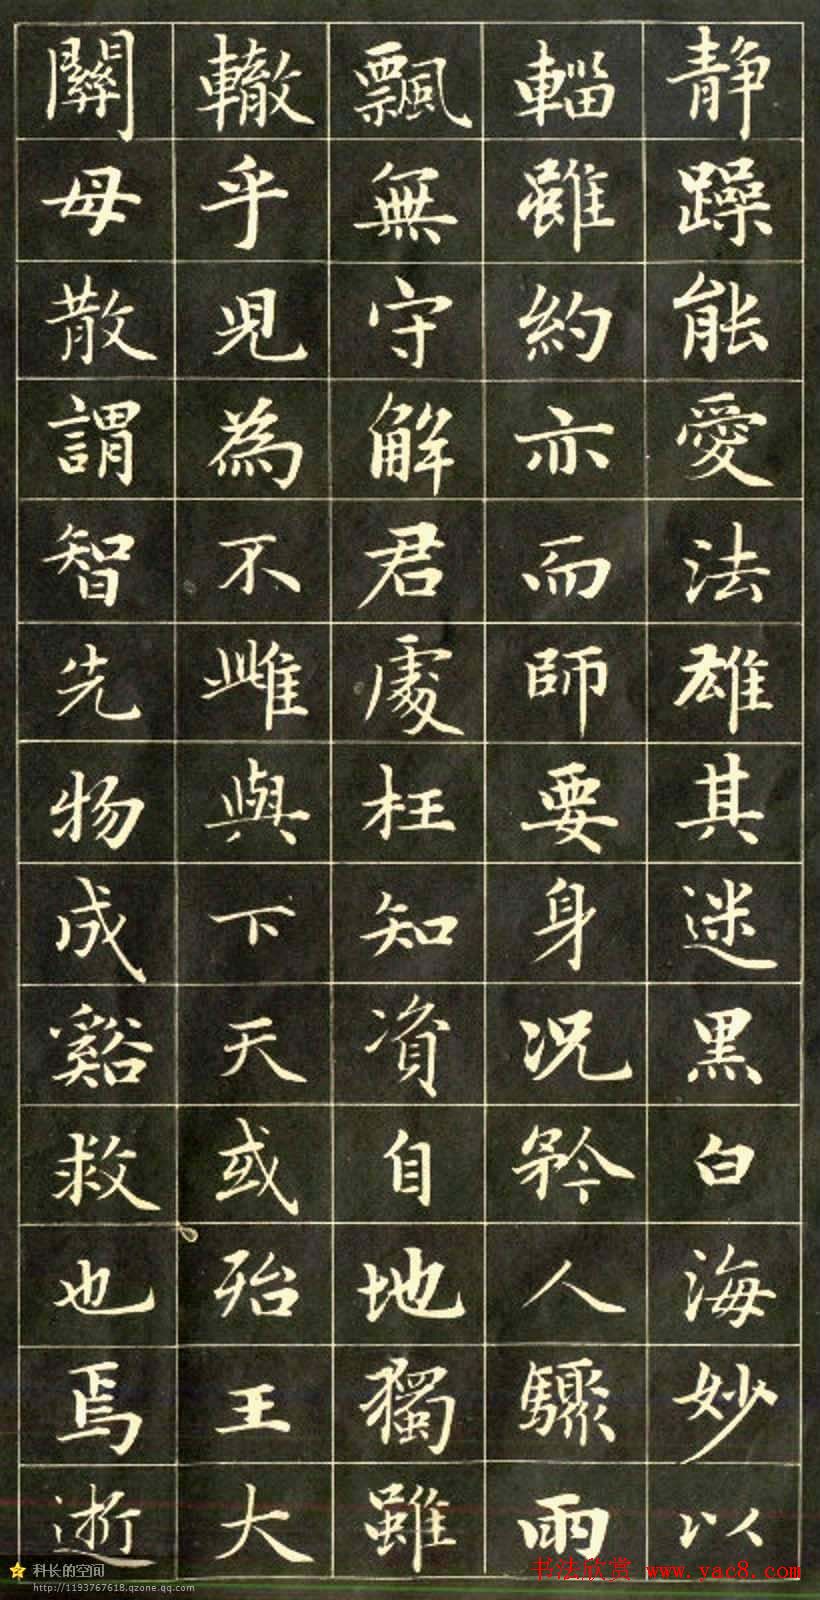 静躁能愛法雄其迷黑白海妙以
輜雖約亦而師要身況矜人驟雨
飄無守解君處枉知資自地獨雖
轍乎見為不雌與下天或殆王大
關母散謂智先物成谿救也焉逝
科长的空间
http://1193767618.qzone.qq.com
书法欣赏 www.yac8.com